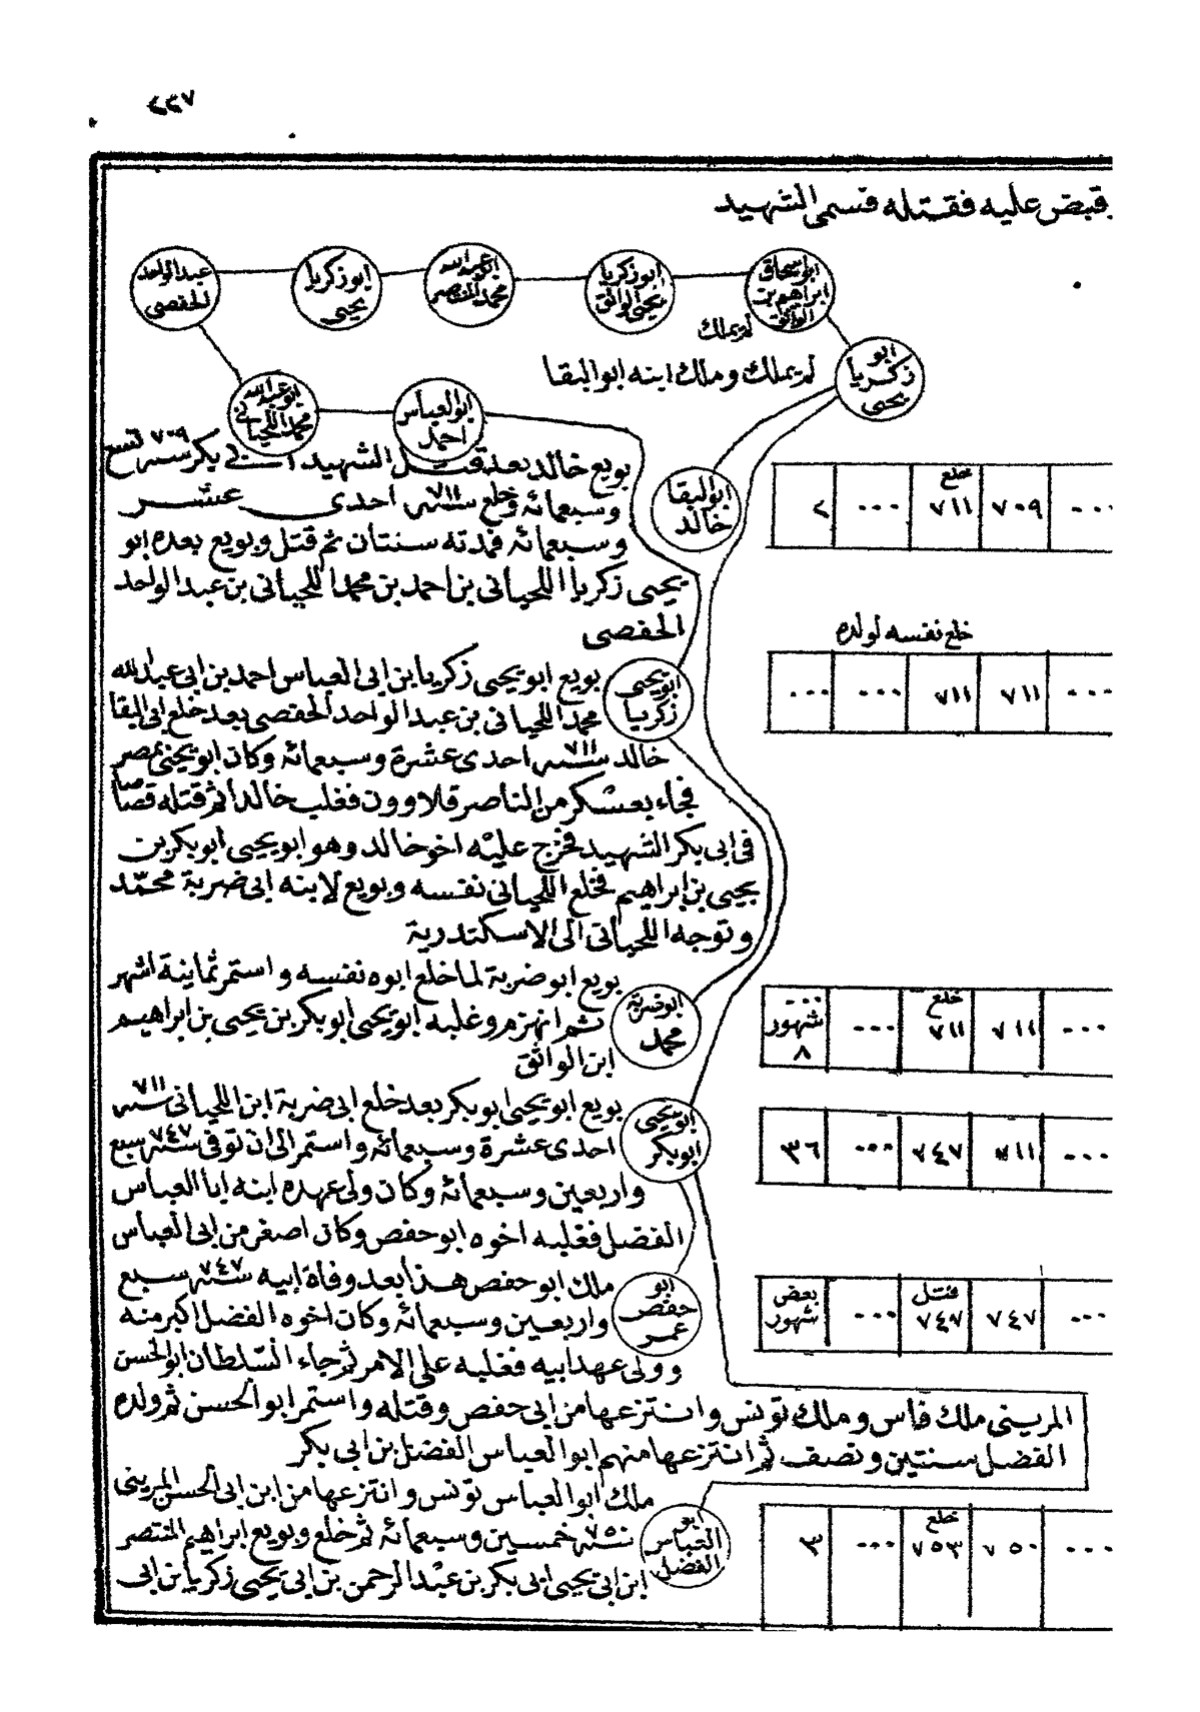 ٢٢٧
قبض عليه فقتله فسمى الشهيد
ابو اسحاق ابراهيم بن الواثق
ابو زكريا يحيى الواثق
ابو عبد الله محمد المنتصر
ابو زكريا يحيى
عبد الواحد الحفصى
لم يملك
ابو زكريا يحيى
لم يملك وملك ابنه ابو البقا
ابو العباس احمد
ابو عبد الله محمد اللحيانى
ابو البقا خالد
بويع خالد بعد قتل الشهيد ابى بكر سنة ٧٠٩ تسع
وسبعمائة وخلع سنة ٧١١ احدى عشر
وسبعمائة فمدته سنتان ثم قتل وبويع بعده ابو
يحيى زكريا اللحيانى بن احمد بن محمد اللحيانى بن عبد الواحد
الحفصى
... ٧٠٩ خلع ٧١١ ... ٢
خلع نفسه لولده
... ٧١١ ٧١١ ... ...
ابو يحيى زكريا
بويع ابو يحيى زكريا ابن ابى العباس احمد بن ابى عبد الله
محمد اللحيانى بن عبد الواحد الحفصى بعد خلع ابى البقا
خالد سنة ٧١١ احدى عشرة وسبعمائة وكان ابو يحيى بمصر
فجاء بعسكر من الناصر قلاوون فغلب خالدا ثم قتله قصاصا
فى ابى بكر الشهيد فخرج عليه اخو خالد وهو ابو يحيى ابو بكر بن
يحيى بن ابراهيم فخلع اللحيانى نفسه وبويع لابنه ابى ضربة محمّد
وتوجه اللحيانى الى الاسكندرية
ابو ضربة محمد
بويع ابو ضربة لما خلع ابوه نفسه واستمر ثماينة اشهر
ثم انهزم وغلبه ابو يحيى ابو بكر بن يحيى بن ابراهيم
ابن الواثق
... ٧١١ خلع ٧١١ ... ... شهور ٨
ابو يحيى ابو بكر
بويع ابو يحيى ابو بكر بعد خلع ابى ضربة ابن اللحيانى سنة ٧١١
احدى عشرة وسبعمائة واستمر الى ان توفى سنة ٧٤٧ سبع
واربعين وسبعمائة وكان ولى عهده ابنه ابا العباس
الفضل فغلبه اخوه ابو حفص وكان اصغر من ابى العباس
... ٧١١ ٧٤٧ ... ٣٦
ابو حفص عمر
ملك ابو حفص هذا بعد وفاة ابيه سنة ٧٤٧ سبع
واربعين وسبعمائة وكان اخوه الفضل اكبر منه
وولى عهد ابيه فغلبه على الامر ثم جاء السّلطان ابو الحسن
المرينى ملك فاس وملك تونس وانتزعها من ابى حفص وقتله واستمر ابو الحسن ثم ولده
الفضل سنتين ونصف ثم انتزعها منهم ابو العباس الفضل بن ابى بكر
... ٧٤٧ قتل ٧٤٧ ... بعض شهور
ابو العباس الفضل
ملك ابو العباس تونس وانتزعها من ابن ابى الحسن المرينى
سنة ٧٥٠ خمسين وسبعمائة ثم خلع وبويع ابراهيم المنتصر
ابن ابى يحيى ابى بكر بن عبد الرحمن بن ابى يحيى زكريا بن ابى
... ٧٥٠ خلع ٧٥٣ ... ٣